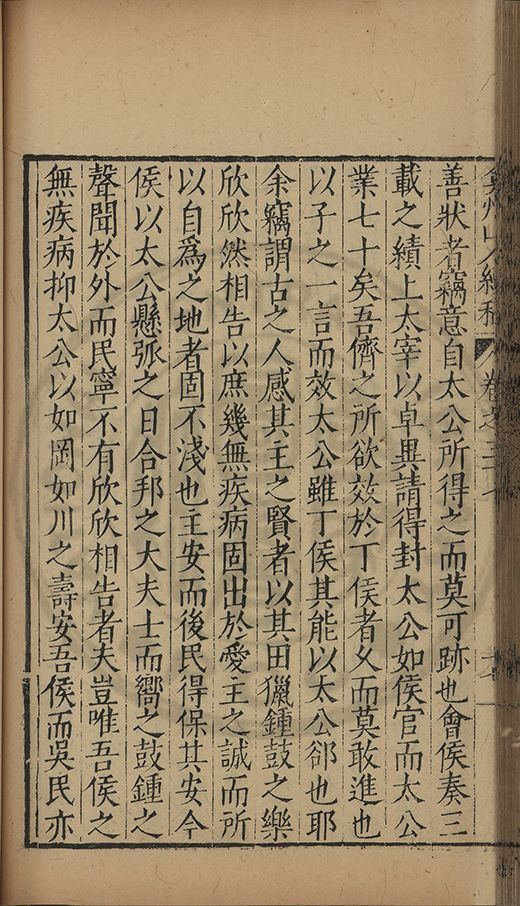 弇州山人續稿 卷之三十
善狀者竊意自太公所得之而莫可跡也會侯奏三
載之績上太宰以卓異請得封太公如侯官而太公
業七十矣吾儕之所欲效於丁侯者久而莫敢進也
以子之一言而效太公雖丁侯其能以太公郤也耶
余竊謂古之人感其主之賢者以其田獵鍾鼓之樂
欣欣然相告以庶幾無疾病固出於愛主之誠而所
以自爲之地者固不淺也主安而後民得保其安今
侯以太公懸弧之日合邦之大夫士而嚮之鼓鍾之
聲聞於外而民寧不有欣欣相告者夫豈唯吾侯之
無疾病抑太公以如岡如川之壽安吾侯而吳民亦